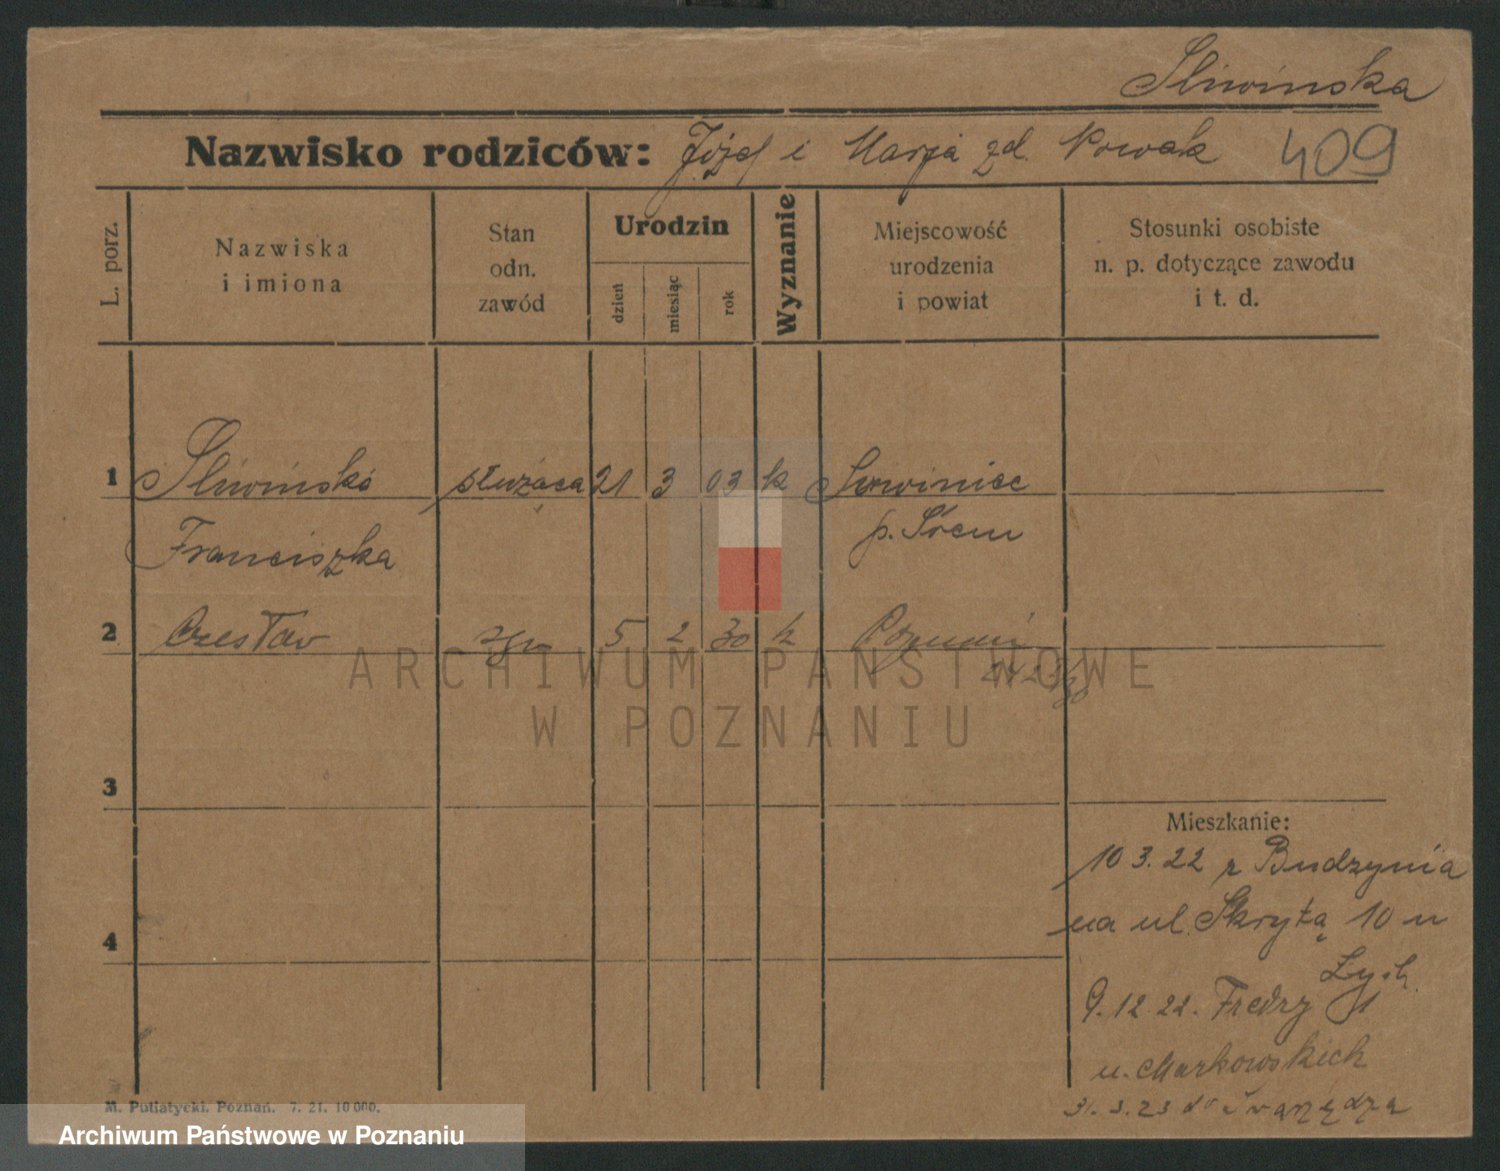 Sliwinska
Nazwisko rodziców: Józef i Marja zd. Nowak 409
L. porz.
Nazwiska
i imiona
Stan
odn.
zawód
Urodzin
dzień
miesiąc
rok
Wyznanie
Miejscowość
urodzenia
i powiat
Stosunki osobiste
n. p. dotyczące zawodu
i t. d.
1 Sliwińska służąca 21 3 03 k
Franciszka p. Śrem
2 Czesław syn 5 2 30 k Poznań
3
4
Mieszkanie:
10 3. 22 z Budzynia
na ul. Skrytą 10 u
9. 12. 22. Fredry
u. Markowskich
31. 3. 23 do Swarzędza
M. Putiatycki. Poznań. 7. 21. 10 000.
ARCHIWUM PAŃSTWOWE
W POZNANIU
Archiwum Państwowe w Poznaniu